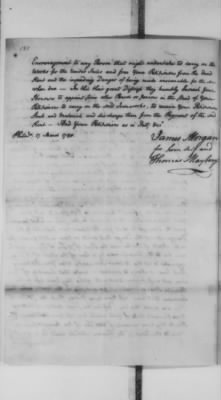 Encouragement to any Person that might undertake to carry on the
Works for the United States and free Your Petitioners from the said
Rent and the impending Danger of being made answerable for the
whole due — In this their great Distress they humbly beseech Your
Honours to appoint some other Person or Persons in the Stead of Your
Petitioners to carry on the said Ironworks, to receive Your Petitioners
Stock and Materials and discharge them from the Payment of the said
Rent — And Your Petitioners as in duty &c
Philad.ª 17 March 1780
James Morgan
for himself and
Thomas Mayberry